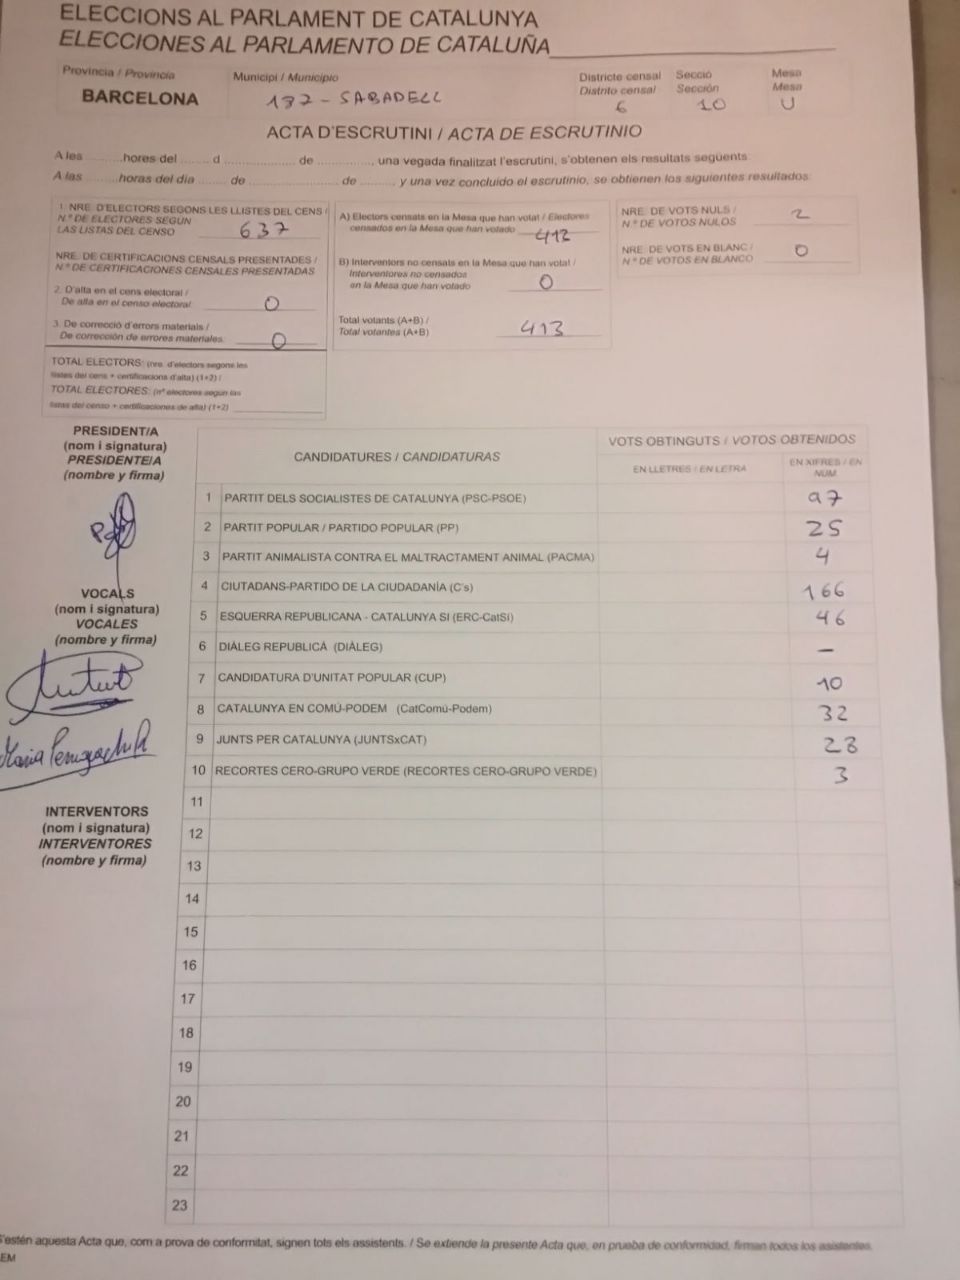 ELECCIONS AL PARLAMENT DE CATALUNYA
ELECCIONES AL PARLAMENTO DE CATALUÑA
Provincia / Provincia
BARCELONA
Municipi / Municipio
187 - SABADELL
Districte censal
Distrito censal
6
Secció
Sección
10
Mesa
Mesa
U
ACTA D'ESCRUTINI / ACTA DE ESCRUTINIO
A les ........hores del ........ d .................... de ..............., una vegada finalitzat l'escrutini, s'obtenen els resultats següents:
A las ........horas del día ........ de ......................... de ......... y una vez concluido el escrutinio, se obtienen los siguientes resultados:
1. NRE. D'ELECTORS SEGONS LES LLISTES DEL CENS /
N.º DE ELECTORES SEGÚN
LAS LISTAS DEL CENSO 637
NRE. DE CERTIFICACIONS CENSALS PRESENTADES /
N.º DE CERTIFICACIONES CENSALES PRESENTADAS
2. D'alta en el cens electoral /
De alta en el censo electoral: 0
3. De correcció d'errors materials /
De corrección de errores materiales: 0
TOTAL ELECTORS: (nre. d'electors segons les
llistes del cens + certificacions d'alta) (1+2) /
TOTAL ELECTORES: (nº electores según las
listas del censo + certificaciones de alta) (1+2)
A) Electors censats en la Mesa que han votat / Electores
censados en la Mesa que han votado 413
B) Interventors no censats en la Mesa que han votat /
Interventores no censados
en la Mesa que han votado 0
Total votants (A+B) /
Total votantes (A+B) 413
NRE. DE VOTS NULS /
N.º DE VOTOS NULOS 2
NRE. DE VOTS EN BLANC /
N.º DE VOTOS EN BLANCO 0
PRESIDENT/A
(nom i signatura)
PRESIDENTE/A
(nombre y firma)
VOCALS
(nom i signatura)
VOCALES
(nombre y firma)
Maria
INTERVENTORS
(nom i signatura)
INTERVENTORES
(nombre y firma)
CANDIDATURES / CANDIDATURAS
VOTS OBTINGUTS / VOTOS OBTENIDOS
EN LLETRES / EN LETRA
EN XIFRES / EN
NUM.
1 PARTIT DELS SOCIALISTES DE CATALUNYA (PSC-PSOE) 97
2 PARTIT POPULAR / PARTIDO POPULAR (PP) 25
3 PARTIT ANIMALISTA CONTRA EL MALTRACTAMENT ANIMAL (PACMA) 4
4 CIUTADANS-PARTIDO DE LA CIUDADANÍA (C's) 166
5 ESQUERRA REPUBLICANA - CATALUNYA SÍ (ERC-CatSí) 46
6 DIÀLEG REPUBLICÀ (DIÀLEG) –
7 CANDIDATURA D'UNITAT POPULAR (CUP) 10
8 CATALUNYA EN COMÚ-PODEM (CatComú-Podem) 32
9 JUNTS PER CATALUNYA (JUNTSxCAT) 28
10 RECORTES CERO-GRUPO VERDE (RECORTES CERO-GRUPO VERDE) 3
11
12
13
14
15
16
17
18
19
20
21
22
23
S'estén aquesta Acta que, com a prova de conformitat, signen tots els assistents. / Se extiende la presente Acta que, en prueba de conformidad, firman todos los asistentes.
EM